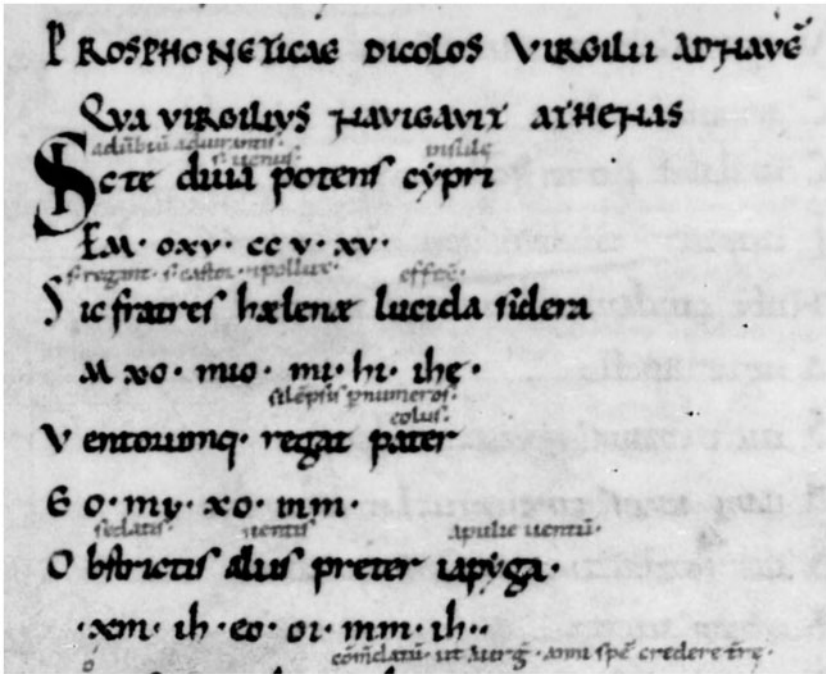 PROSPHONETICAE DICOLOS VIRGILII AD NAVĒ
QUA VIRGILIUS NAVIGAVIT ATHENAS
aduerbiū adiurantis
s. uenus insulę
SIC te diua potens cẏpri
EM· oxv· cc v· xv·
s. regant· s. castor· ⁊ pollux· effęc̄·
Sic fratres hælenæ lucida sidera
M xo· muo· mı· hı· ihę·
silēpsis p numeros·
eolus·
Ventorumq· regat pater
E o· mẏ· xo· mm·
sedatis· uentis apulie uentū·
Obstrictis aliis preter iapẏga·
·xm· ih·eo· oı· mm· ih··
ut uirg̅· animi spē credere